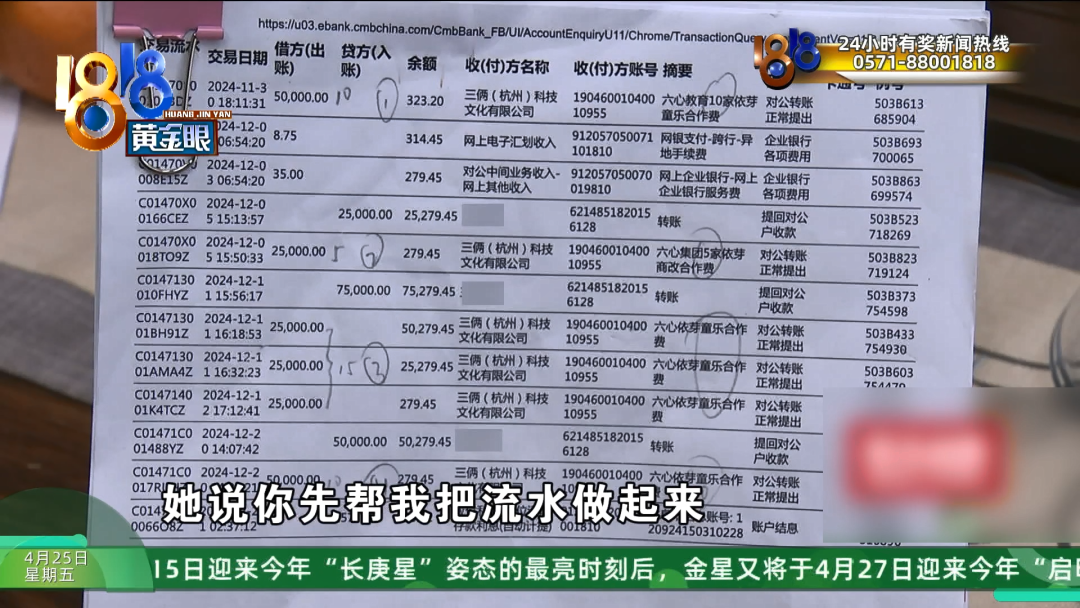 https://u03.ebank.cmbchina.com/CmbBank_FB/UI/AccountEnquiryU11/Chrome/TransactionQue
1818
HUANG JIN YAN
黄金眼
1818
24小时有奖新闻热线
0571-88001818
交易流水 交易日期 借方(出账) 贷方(入账) 余额 收(付)方名称 收(付)方账号 摘要
2024-11-3
0 18:11:31 50,000.00 10 1 323.20 三俩(杭州)科技文化有限公司 190460010400
10955 六心教育10家依芽童乐合作费 对公转账正常提出 503B613
685904
2024-12-0
06:54:20 8.75 314.45 网上电子汇划收入 912057050071
101810 网银支付-跨行-异地手续费 企业银行各项费用 503B693
700065
008E15Z 2024-12-0
3 06:54:20 35.00 279.45 对公中间业务收入-网上其他收入 912057050070
019810 网上企业银行-网上企业银行服务费 企业银行各项费用 503B863
699574
C01470X0
0166CEZ 2024-12-0
5 15:13:57 25,000.00 25,279.45 621485182015
6128 转账 提回对公户收款 503B523
718269
C01470X0
018TO9Z 2024-12-0
5 15:50:33 25,000.00 5 2 279.45 三俩(杭州)科技文化有限公司 190460010400
10955 六心集团5家依芽商改合作费 对公转账正常提出 503B823
719124
C0147130
010FHYZ 2024-12-1
1 15:56:17 75,000.00 75,279.45 621485182015
6128 转账 提回对公户收款 503B373
754598
C0147130
01BH91Z 2024-12-1
1 16:18:53 25,000.00 50,279.45 三俩(杭州)科技文化有限公司 190460010400
10955 六心依芽童乐合作费 对公转账正常提出 503B433
754930
C0147130
01AMA4Z 2024-12-1
1 16:32:23 25,000.00 15 3 25,279.45 三俩(杭州)科技文化有限公司 190460010400
10955 六心依芽童乐合作费 对公转账正常提出 503B603
C0147140
01K4TCZ 2024-12-1
2 17:12:41 25,000.00 279.45 三俩(杭州)科技文化有限公司 190460010400
10955 六心依芽童乐合作费 对公转账正常提出
C01471C0
01488YZ 2024-12-2
0 14:07:42 50,000.00 50,279.45 621485182015
6128 转账 提回对公户收款
C01471C0 2024-12-2
50,000.00 279.45 三俩(杭州)科技 190460010400 六心依芽童乐合作 对公转账正常提出
0066O8Z 1 02:37:12 001810 20924150310228 账户结息
她说你先帮我把流水做起来
4月25日
星期五
15日迎来今年“长庚星”姿态的最亮时刻后,金星又将于4月27日迎来今年“启